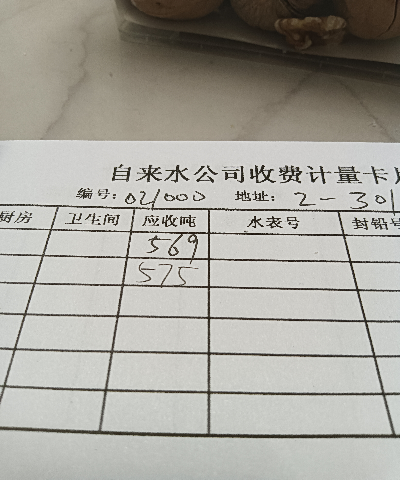 自来水公司收费计量卡片
编号: 021000 地址: 2-301
厨房 卫生间 应收吨 水表号 封铅号
569
575